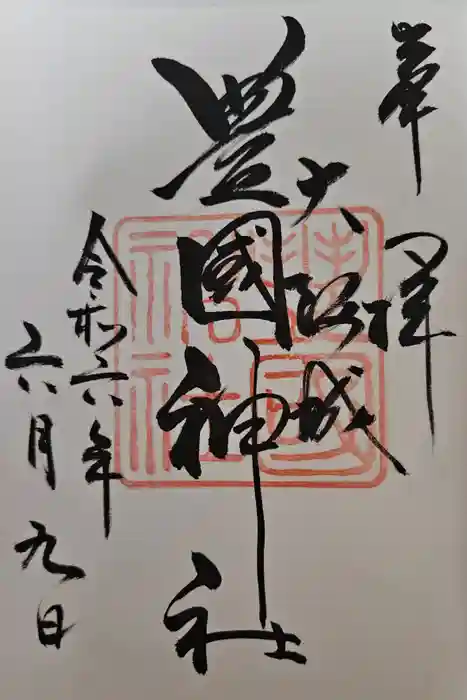 奉拝
大阪城
豊國神社
令和六年
六月九日
豊國神社